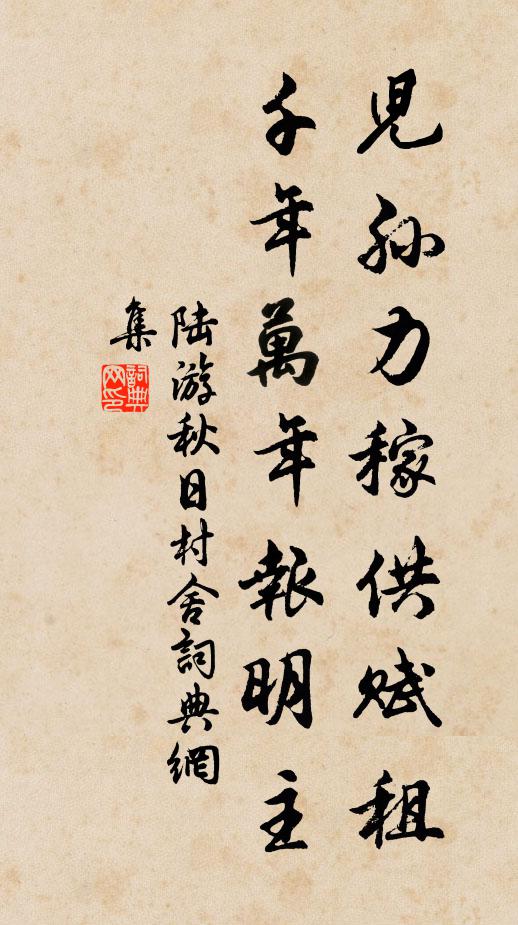 兒孫力稼供賦租
千年萬年報明主
陸游秋日村舍詞典網
集
詞典
网印